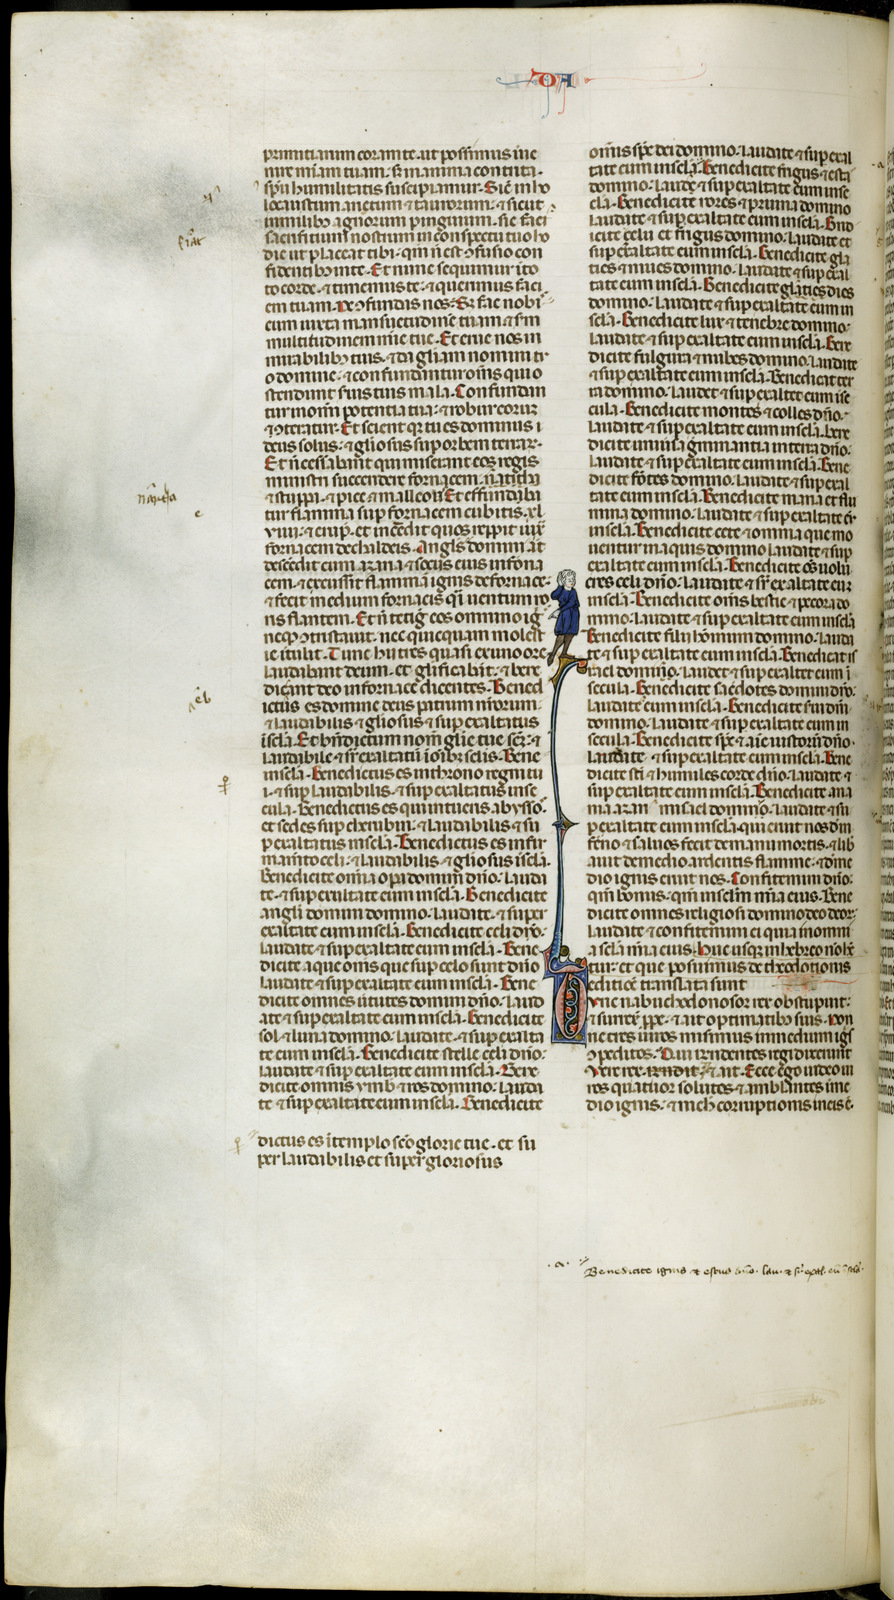 DA
primitiarum coram te ut possimus īue
nire mīam tuam. S; in anima contrita.
⁊ sp̄u humilitatis suscipiamur. Sic̄ in ho
locaustum arietum ⁊ taurorum. ⁊ sicut
in milibꝫ agnorum pinguium. sic fiet
sacrificium nostrum in conspectu tuo ho
die ut placeat tibi. qm̄ n̄ est ꝯfusio con
fidentibꝫ in te. Et nunc sequimur ī to
to corde. ⁊ timemus te. ⁊ querimus faci
em tuam. Ne ꝯfundas nos. S; fac nobī
cum iuxta mansuetudinē tuam ⁊ sc̄m
multitudinem mīe tue. Et erue nos in
mirabilibꝫ tuis. ⁊ da gl̄iam nomini tu
o domine. ⁊ confundantur om̄s qui o
stendunt seruis tuis mala. Confundan
tur in om̄i potentia tua. ⁊ robur eorum
ꝯteratur. Et scient qr tu es dominus
deus solus. ⁊ gl̄iosus sup orbem terrar.
Et n̄ cessabant qui miserant eos regis
ministri succendere fornacem. naptha
⁊ stuppa. ⁊ pice ⁊ malleol. Et effundeba
tur flamma sup fornacem cubitis. xl
viiii. ⁊ erup. et incēdit quos reppit iux
fornacem de chaldeis. Angls domini aut
descēdit cum azaria ⁊ sociis eius in forna
cem. ⁊ excussit flammā ignis de fornace.
⁊ fecit medium fornacis q̄i uentum ro
ris flantem. Et n̄ tetig eos omnino ig
neqꝫ ꝯtristauit. nec quicquam molest
ie ītulit. Tunc hii tres quasi ex uno ore
laudabant deum. et gl̄ificabāt. ⁊ bene
dicebant deo in fornace dicentes. Bened
ictus es domine deus patrum nr̄orum.
⁊ laudabilis ⁊ gl̄iosus ⁊ sup exaltatus
ī scl̄a. Et bn̄dictum nom̄ gl̄ie tue sc̄m. ⁊
laudabile ⁊ sup exaltatū ī om̄ibꝫ sclis. Bene
in scl̄a. Benedictus es in throno regni tu
i. ⁊ sup laudabilis. ⁊ sup exaltatus in se
cula. Benedictus es qui intueris abyssos.
et sedes sup cherubin. ⁊ laudabilis ⁊ su
p exaltatus in scl̄a. Benedictus es in fir
mam̄to celi. ⁊ laudabilis ⁊ gl̄iosus ī scl̄a.
Benedicite om̄ia opa domini dn̄o. lauda
te. ⁊ sup exaltate eum in scl̄a. Benedicite
angli domini domino. laudate. ⁊ super
exaltate eum in scl̄a. Benedicite celi dn̄o.
laudate ⁊ sup exaltate eum in scl̄a. Bene
dicite aque om̄s que sup celos sunt dn̄o
laudate ⁊ sup exaltate eum in scl̄a. Bene
dicite omnes uirtutes domini dn̄o. laud
ate ⁊ sup exaltate eum in scl̄a. Benedicite
sol ⁊ luna domino. laudate. ⁊ sup exalta
te eum in scl̄a. Benedicite stelle celi dn̄o.
laudate ⁊ sup exaltate eum in scl̄a. Bene
dicite omnis ymb ⁊ ros domino. lauda
te ⁊ sup exaltate eum in scl̄a. Benedicite
dictus es ī templo sc̄o glorie tue. et su
per laudabilis et super gloriosus
om̄s sp̄c dei domino. Laudate ⁊ sup exal
tate eum in scl̄a. Benedicite frigus ⁊ esta
domino. laudate ⁊ sup exaltate eum in se
cla. Benedicite rores ⁊ pruina domino
laudate ⁊ sup exaltate eum in scl̄a. Bnd
icite gelu et frigus domino. laudate et
sup exaltate eum in scl̄a. Benedicite gla
ties ⁊ niues domino. laudate ⁊ sup exal
tate eum in scl̄a. Benedicite glaties dies
domino. laudate ⁊ sup exaltate eum in
scl̄a. Benedicite lux ⁊ tenebre domino.
laudate ⁊ sup exaltate eum in scl̄a. Bene
dicite fulgura ⁊ nubes domino. laudate
⁊ sup exaltate eum in scl̄a. Benedicat ter
ra domino. laudet ⁊ sup exaltet eum ī se
cula. Benedicite montes ⁊ colles dn̄o.
laudate ⁊ sup exaltate eum in scl̄a. Bene
dicite uniusa gminantia in terra dn̄o.
laudate ⁊ sup exaltate eum in scl̄a. Bene
dicite fōtes domino. laudate ⁊ sup exal
tate eum in scl̄a. Benedicite maria et flu
mina domino. laudate ⁊ sup exaltate eum
in scl̄a. Benedicite cete ⁊ omnia que mo
uentur in aquis domino laudate ⁊ sup
exaltate eum in scl̄a. Benedicite om̄s uolu
cres celi dn̄o. laudate ⁊ sup exaltate eum
in scl̄a. Benedicite om̄s bestie ⁊ pecora do
mino. laudate ⁊ sup exaltate eum in scl̄a
Benedicite filii hominum domino. lauda
te ⁊ sup exaltate eum in scl̄a. Benedicat is
rael domino. laudet ⁊ sup exaltet eum ī
secula. Benedicite sac̄dotes domini dn̄o.
laudate eum in scl̄a. Benedicite serui dn̄i
domino. laudate ⁊ sup exaltate eum in
secula. Benedicite sp̄c ⁊ aīe iustorū dn̄o.
laudate. ⁊ sup exaltate eum in scl̄a. Bene
dicite sc̄i ⁊ humiles corde dn̄o. laudate ⁊
sup exaltate eum in scl̄a. Benedicite ana
nia azaria misael domino. laudate ⁊ su
p exaltate eum in scl̄a. qui eruit nos de in
ferno ⁊ saluos fecit de manu mortis. ⁊ lib
auit de medio ardentis flamme. ⁊ de me
dio ignis eruit nos. Confitemini dn̄o.
qm̄ bonus. qm̄ in sclm̄ mīa eius. Bene
dicite omnes religiosi domino deo deor.
laudate ⁊ confitemini ei quia in omni
a scl̄a mīa eius. Huc usqꝫ in hebreo nō hr̄
tur. et que posuimus de theodotionis
editiōe translata sunt
Tunc nabuchodonosor rex obstupuit.
⁊ surrex̄ ppe. ⁊ ait optimatibꝫ suis. Non
ne tres uiros misimus in medium igs
ꝯpeditos. Qui rn̄dentes regi dixerunt
Vere rex. rn̄dit ⁊ ait. Ecce ego uideo ui
ros quatuor solutos ⁊ amblantes ī me
dio ignis. ⁊ nich corruptionis in eis ē.
fiat
.a. Benedicite ignis ⁊ estus dn̄o. lau. ⁊ sup exal. eū ī scl̄a.